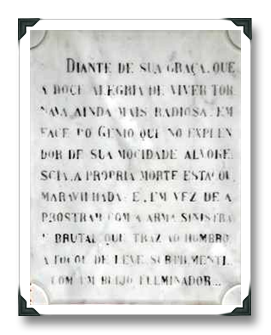 DIANTE DE SUA GRAÇA, QUE
A DOCE ALEGRIA DE VIVER TOR
NAVA AINDA MAIS RADIOSA, EM
FACE DO GENIO QUE NO EXPLEN
DOR DE SUA MOCIDADE ALVORE
SCIA, A PROPRIA MORTE ESTACOU,
MARAVILHADA E, EM VEZ DE A
PROSTRAR COM A ARMA SINISTRA
E BRUTAL QUE TRAZ AO HOMBRO,
A TOCOU DE LEVE, SUBTILMENTE,
COM UM BEIJO FULMINADOR...